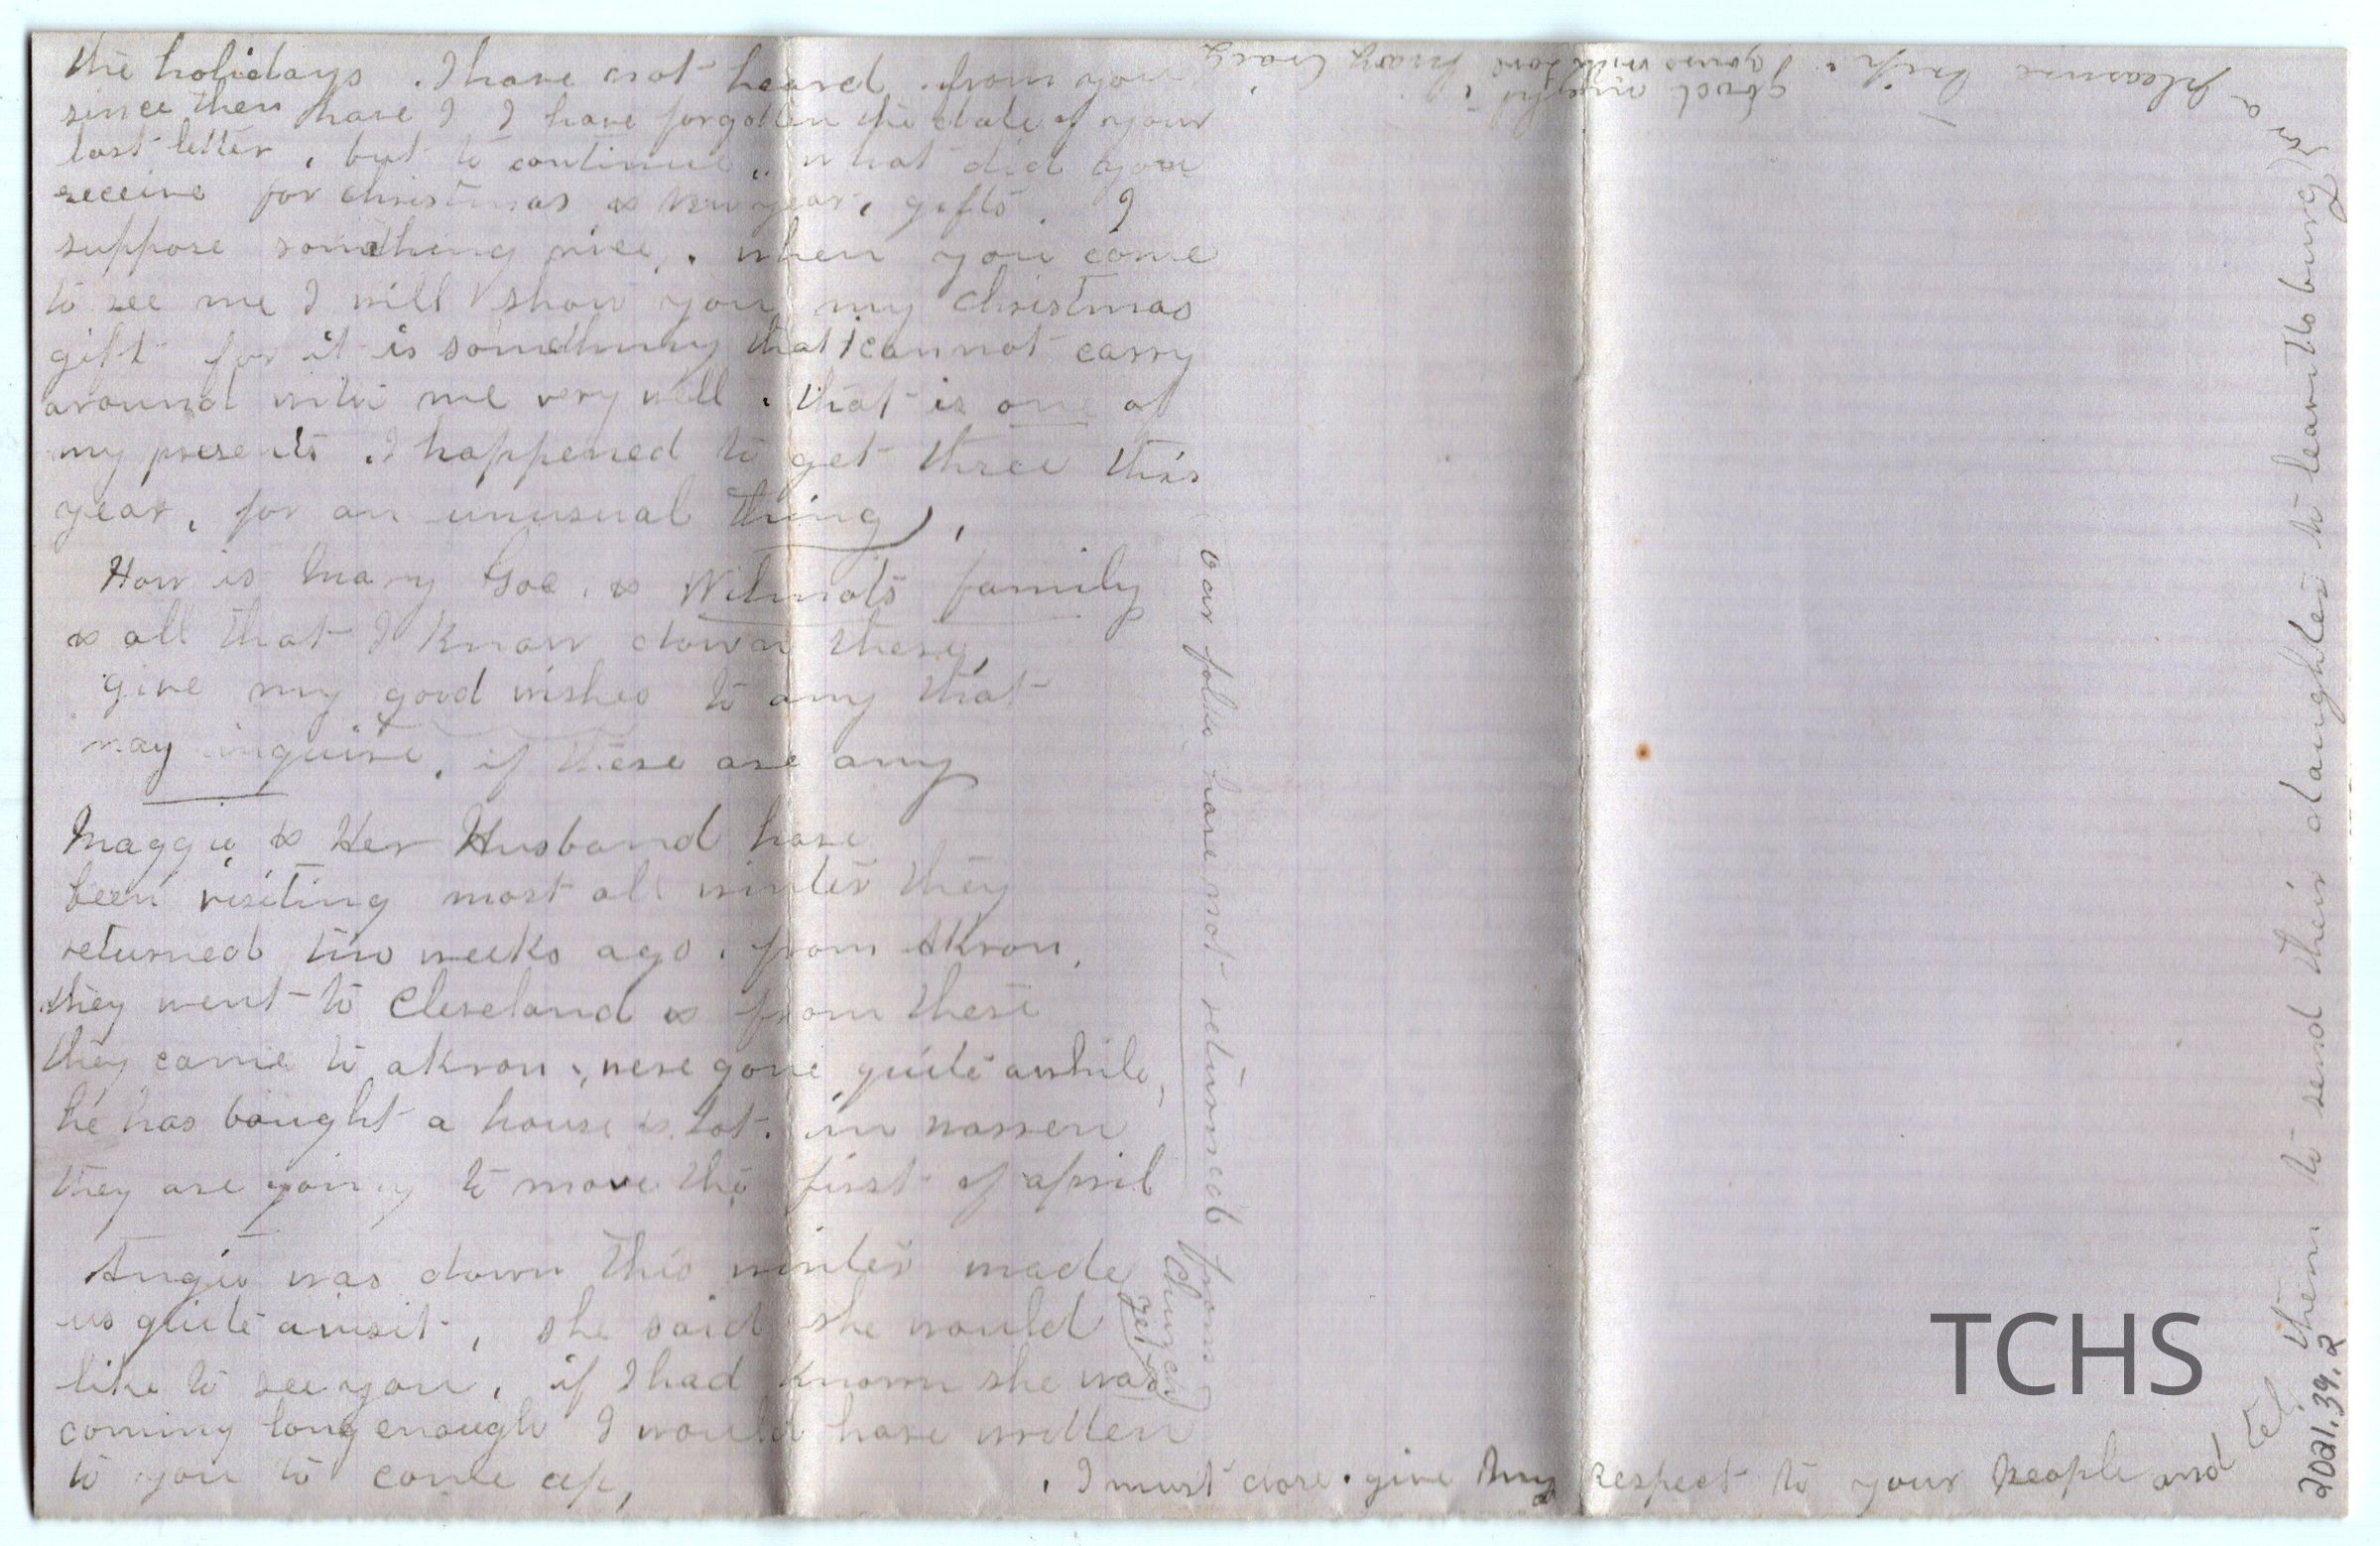 the holidays . I have not heard from you
since then have I I have forgotten the date of your
last letter , but to continue , what did you
receive for christmas & New year , gifts . I
suppose something nice , . when you come
to see me I will show you my christmas
gift for it is something that I cannot carry
around with me very well . that is one of
my presents . I happened to get three this
year , for an unusual thing ) ,
How is Mary Goe , & Wilmots family
& all that I know down there ,
give my good wishes to any that
may inquire , if there are any
Maggie & Her Husband have
been visiting most all winter they
returned two weeks ago . from Akron ,
they went to Cleveland & from there
they came to akron , were gone quite awhile ,
he has bought a house & lot . in warren
they are going to move the first of april
Angie was down this winter made
us quite a visit , she said she would
like to see you , if I had known she was
coming long enough I would have written
to you to come up ,
our folks have not returned from
church
yet
. I must close . give my respect to your people and
tell them to send their daughter to leavittsburg
on a pleasure trip .
good night
yours with love Mary Craig
2021.39.2
TCHS